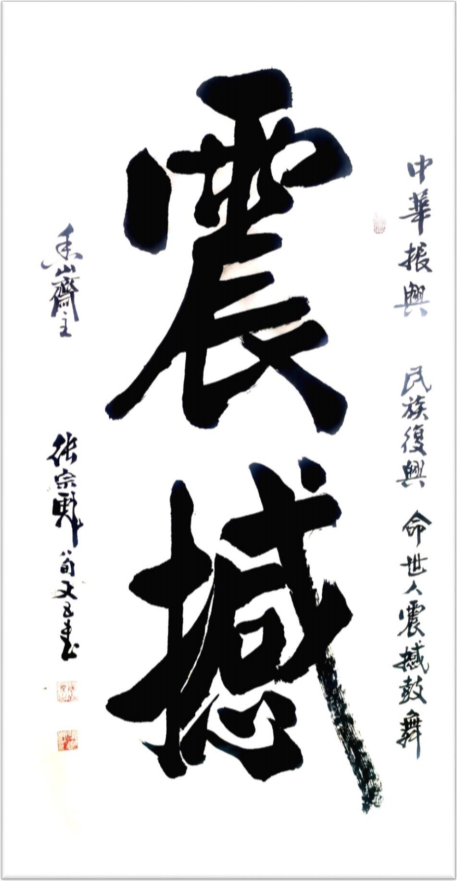 震撼
中華振興 民族復興 命世人震撼鼓舞
香山齋主
張宗彪